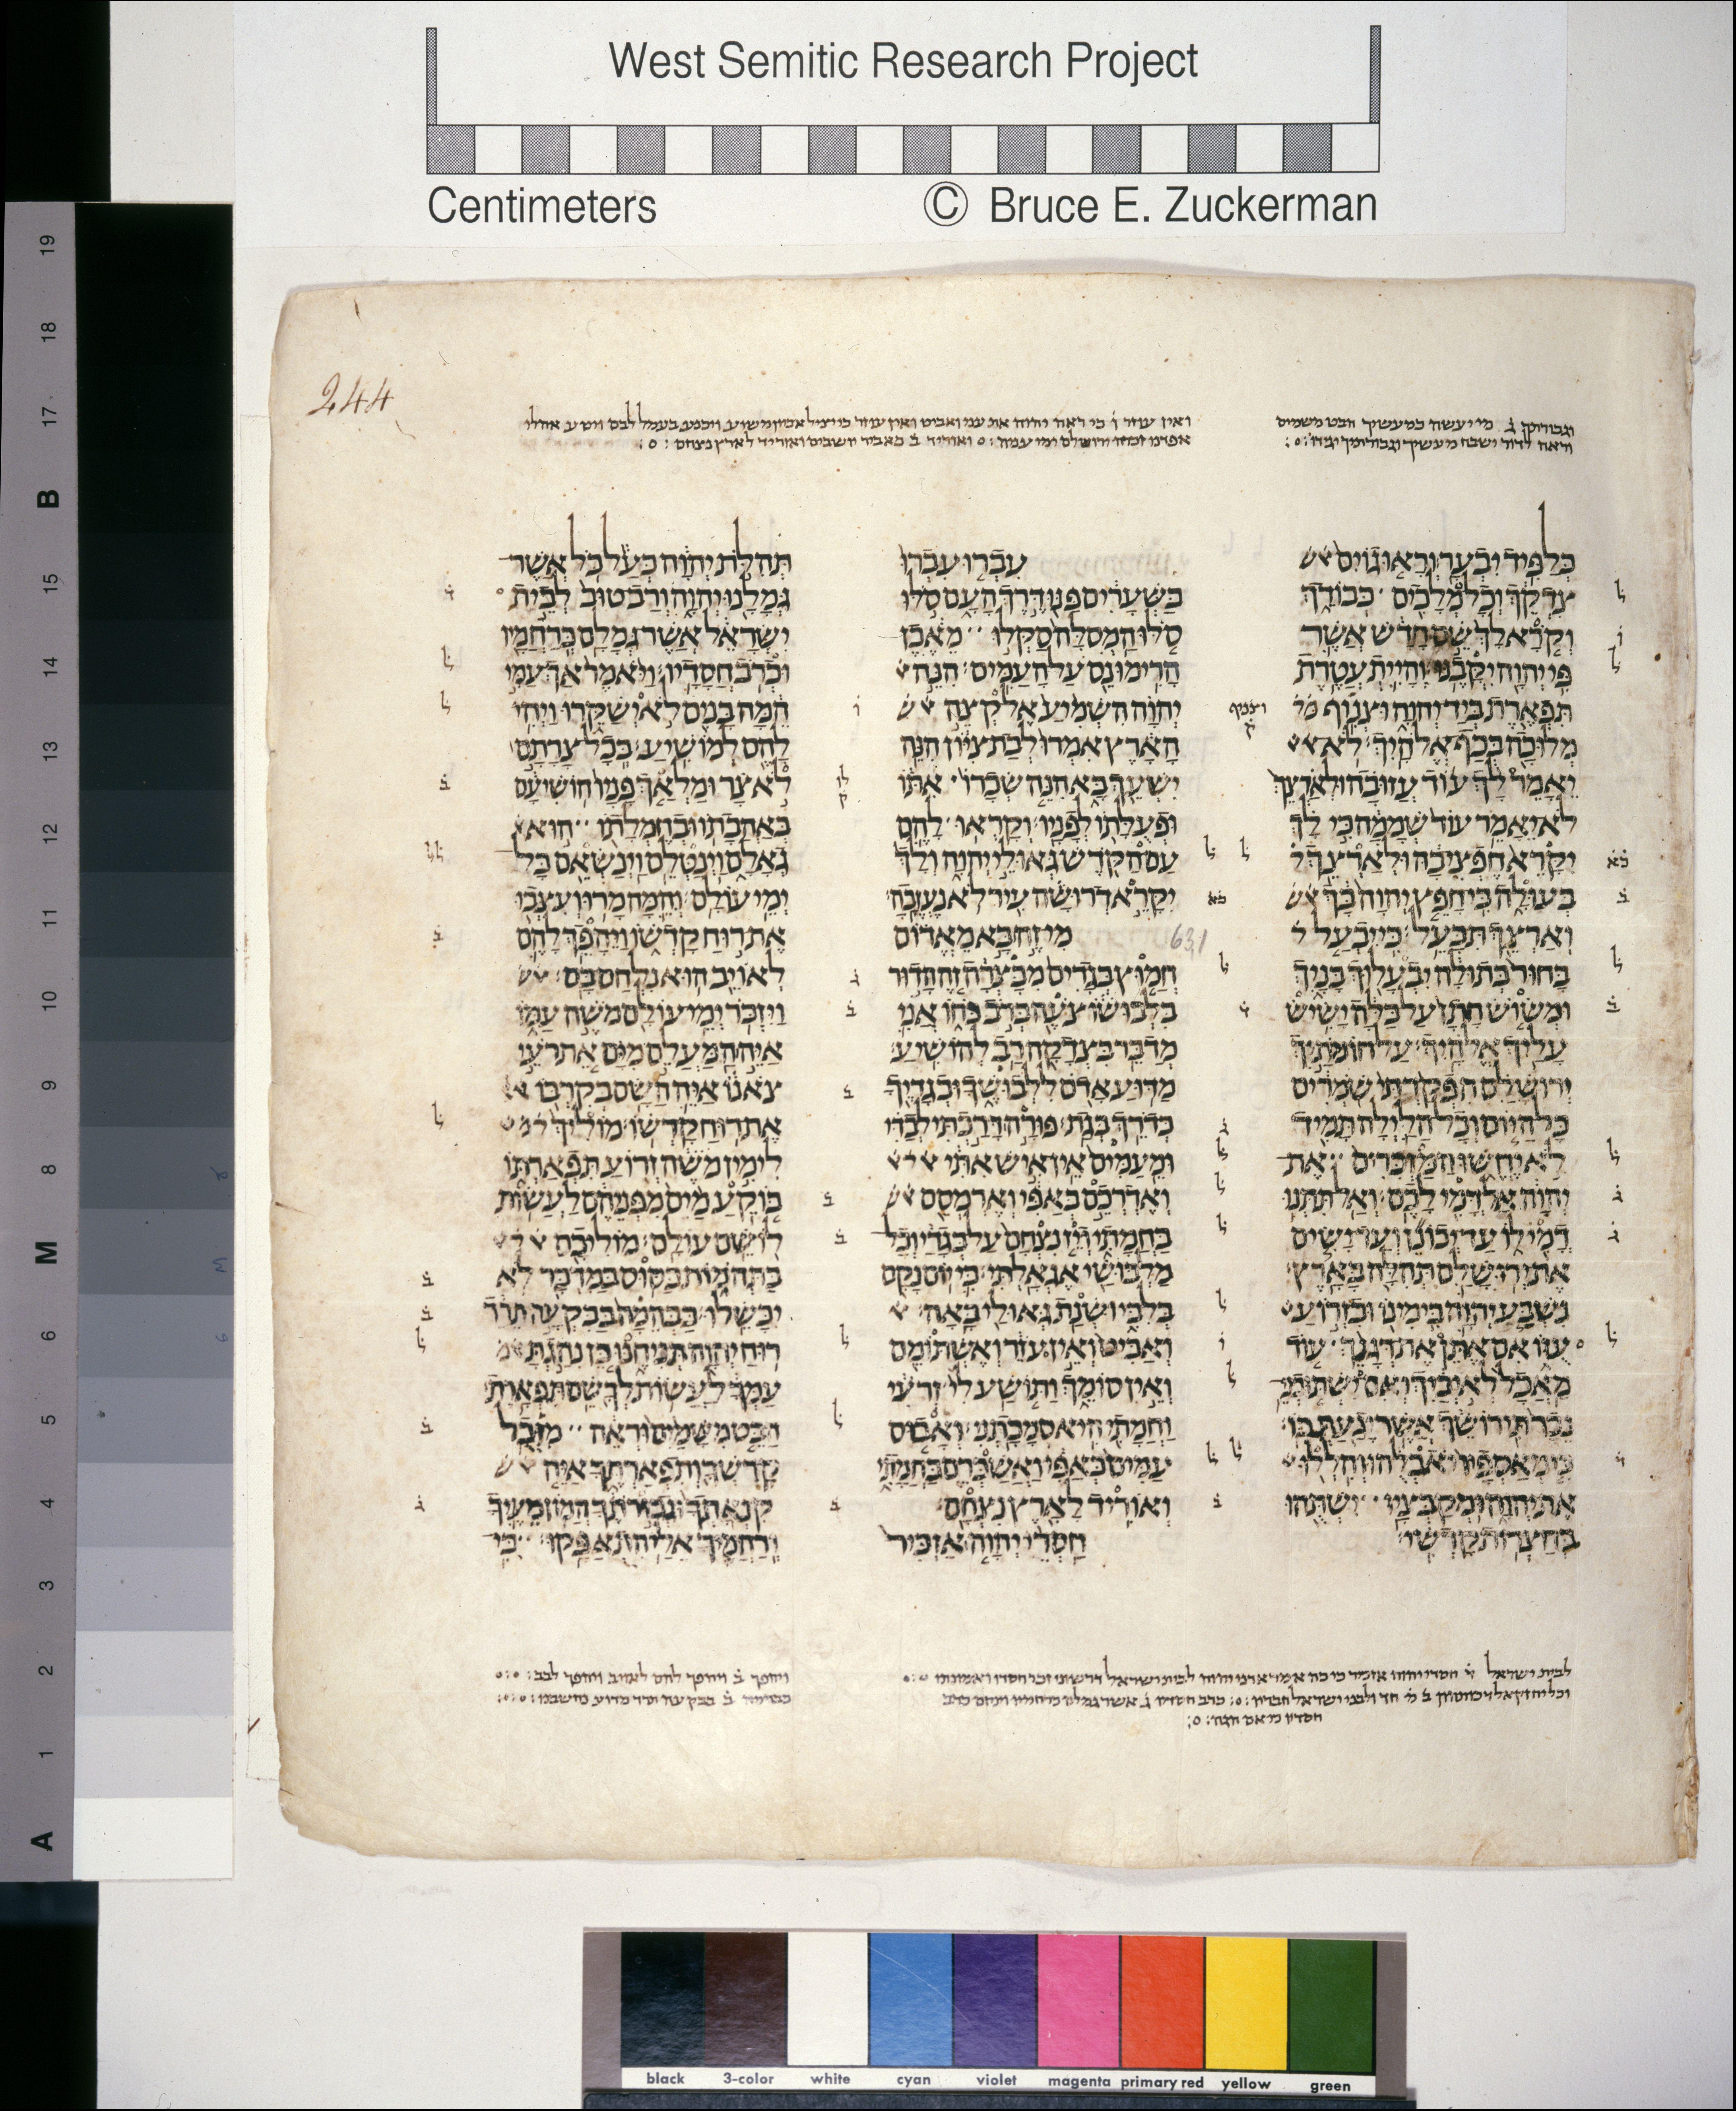 West Semitic Research Project
Centimeters © Bruce E. Zuckerman
244
וגבורתך ב מי יעשה כמעשיך הבט משמים
וראה לדור ישבח מעשיך וגבורתיך יגידו
כלפיד יבער וראו גוים
צדקך וכל מלכים כבודך
וקרא לך שם חדש אשר
פי יהוה יקבנו והיית עטרת
תפארת ביד יהוה וצנוף
מלוכה בכף אלהיך לא
יאמר לך עוד עזובה ולארצך
לא יאמר עוד שממה כי לך
יקרא חפצי בה ולארצך
בעולה כי חפץ יהוה בך
וארצך תבעל כי יבעל
בחור בתולה יבעלוך בניך
ומשוש חתן על כלה ישיש
עליך אלהיך על חומתיך
ירושלם הפקדתי שמרים
כל היום וכל הלילה תמיד
לא יחשו המזכרים את
יהוה אל דמי לכם ואל תתנו
דמי לו עד יכונן ועד ישים
את ירושלם תהלה בארץ
נשבע יהוה בימינו ובזרוע
עזו אם אתן את דגנך עוד
מאכל לאיביך ואם ישתו בני
נכר תירושך אשר יגעת בו
כי מאספיו יאכלהו והללו
את יהוה ומקבציו ישתהו
בחצרות קדשי
וצניף
ק
עברו עברו
בשערים פנו דרך העם סלו
סלו המסלה סקלו מאבן
הרימו נס על העמים הנה
יהוה השמיע אל קצה
הארץ אמרו לבת ציון הנה
ישעך בא הנה שכרו אתו
ופעלתו לפניו וקראו להם
עם הקדש גאולי יהוה ולך
יקרא דרושה עיר לא נעזבה
מי זה בא מאדום
631
חמוץ בגדים מבצרה זה הדור
בלבושו צעה ברב כחו אני
מדבר בצדקה רב להושיע
מדוע אדם ללבושך ובגדיך
כדרך בגת פורה דרכתי לבדי
ומעמים אין איש אתי
ואדרכם באפי וארמסם
בחמתי ויז נצחם על בגדי וכל
מלבושי אגאלתי כי יום נקם
בלבי ושנת גאולי באה
ואביט ואין עזר ואשתומם
ואין סומך ותושע לי זרעי
וחמתי היא סמכתני ואבוס
עמים באפי ואשכרם בחמתי
ואוריד לארץ נצחם
חסדי יהוה אזכיר
תהלת יהוה כעל כל אשר
גמלנו יהוה ורב טוב לבית
ישראל אשר גמלם כרחמיו
וכרב חסדיו ויאמר אך עמי
המה בנים לא ישקרו ויהי
להם למושיע בכל צרתם
לא צר ומלאך פניו הושיעם
באהבתו ובחמלתו הוא
גאלם וינטלם וינשאם כל
ימי עולם והמה מרו ועצבו
את רוח קדשו ויהפך להם
לאויב הוא נלחם בם
ויזכר ימי עולם משה עמו
איה המעלם מים את רעי
צאנו איה השם בקרבו
את רוח קדשו מוליך
לימין משה זרוע תפארתו
בוקע מים מפניהם לעשות
לו שם עולם מוליכם
בתהמות כסוס במדבר לא
יכשלו כבהמה בבקעה תרד
רוח יהוה תניחנו כן נהגת
עמך לעשות לך שם תפארת
הבט משמים וראה מזבל
קדשך ותפארתך איה
קנאתך וגבורתך המון מעיך
ורחמיך אלי התאפקו כי
19
18
17
B
15
14
13
12
11
10
9
8
M
6
5
4
3
2
1
A
black 3-color white cyan violet magenta primary red yellow green